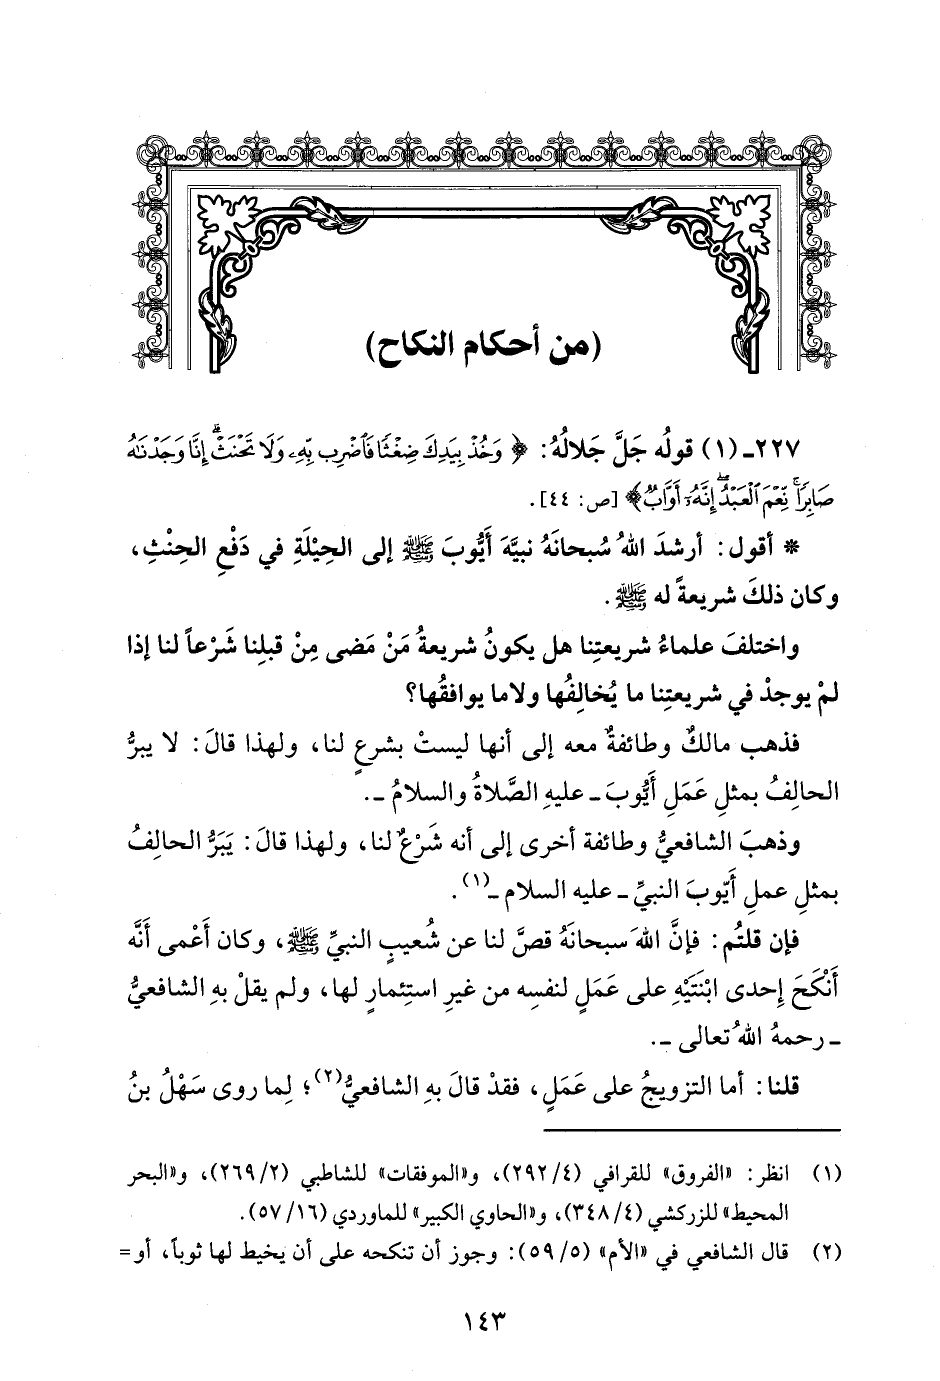 (من أحكام النكاح)
٢٢٧ـ (١) قولُه جَلَّ جَلالُهُ: ﴿وَخُذْ بِيَدِكَ ضِغْثًا فَاضْرِب بِّهِ وَلَا تَحْنَثْ ۗ إِنَّا وَجَدْنَاهُ
صَابِرًا ۚ نِّعْمَ الْعَبْدُ ۖ إِنَّهُ أَوَّابٌ﴾ [ص: ٤٤].
* أقول: أرشدَ اللهُ سُبحانَهُ نبيَّهَ أَيُّوبَ ﷺ إلى الحِيْلَةِ في دَفْعِ الحِنْثِ،
وكان ذلكَ شريعةً له ﷺ.
واختلفَ علماءُ شريعتِنا هل يكونُ شريعةُ مَنْ مَضى مِنْ قبلِنا شَرْعاً لنا إذا
لمْ يوجدْ في شريعتِنا ما يُخالِفُها ولاما يوافقُها؟
فذهب مالكٌ وطائفةٌ معه إلى أنها ليستْ بشرعٍ لنا، ولهذا قالَ: لا يبرُّ
الحالِفُ بمثلِ عَمَلِ أَيُّوبَ ـ عليهِ الصَّلاةُ والسلامُ ـ.
وذهبَ الشافعيُّ وطائفة أخرى إلى أنه شَرْعٌ لنا، ولهذا قالَ: يَبَرُّ الحالِفُ
بمثلِ عملِ أَيّوبَ النبيِّ ـ عليه السلام ـ(١).
فإن قلتُم: فإنَّ اللهَ سبحانَهُ قصَّ لنا عن شُعيبٍ النبيِّ ﷺ، وكان أَعْمى أَنَّه
أَنْكَحَ إحدى ابْنَتَيْهِ على عَمَلٍ لنفسِه من غيرِ استِئمارٍ لها، ولم يقلْ بهِ الشافعيُّ
ـ رحمهُ اللهُ تعالى ـ.
قلنا: أما التزويجُ على عَمَلٍ، فقدْ قالَ بهِ الشافعيُّ(٢)؛ لِما روى سَهْلُ بنُ
(١) انظر: «الفروق» للقرافي (٤/ ٢٩٢)، و«الموفقات» للشاطبي (٢/ ٢٦٩)، و«البحر
المحيط» للزركشي (٤/ ٣٤٨)، و«الحاوي الكبير» للماوردي (١٦/ ٥٧).
(٢) قال الشافعي في «الأم» (٥/ ٥٩): وجوز أن تنكحه على أن يخيط لها ثوباً، أو=
١٤٣